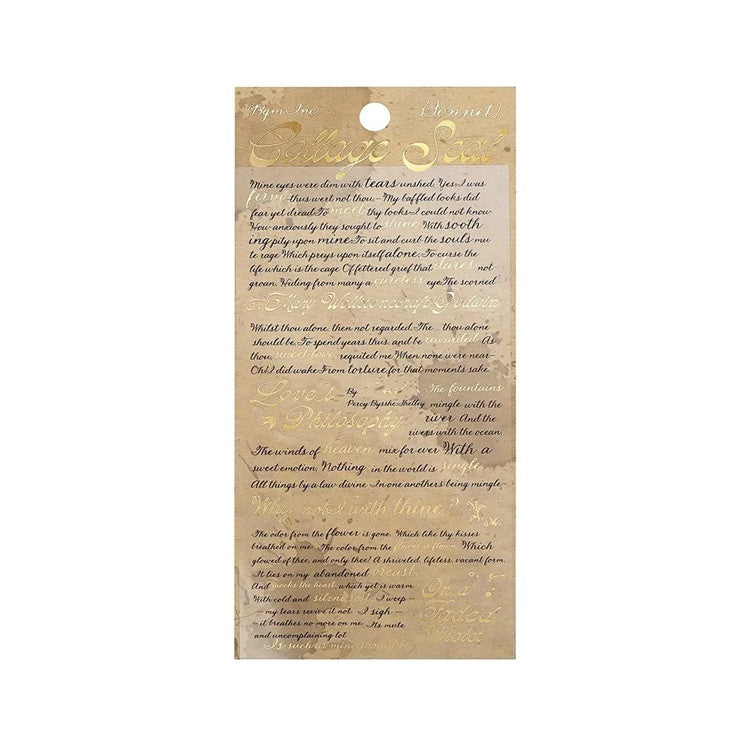 Bgm-Inc
{Sonnet}
Collage Seal
Mine eyes were dim with tears unshed; Yes-I was
firm-thus wert not thou;- My baffled looks did
fear yet dread To meet thy looks-I could not know
How anxiously they sought to shine With sooth
ing pity upon mine. To sit and curb the souls mu
te rage Which preys upon itself alone; To curse the
life which is the cage Of fettered grief that dares not
groan, Hiding from many a careless eye The scorned
To Mary Wollstonecraft Godwin
Whilst thou alone, then not regarded, The thou alone
should be, To spend years thus, and be rewarded, As
thou, sweet love, requited me When none were near-
Oh! I did wake From torture for that moments sake.
Love's
Philosophy
By
Percy Bysshe Shelley
The fountains
mingle with the
river And the
rivers with the ocean,
The winds of heaven mix for ever With a
sweet emotion; Nothing in the world is single,
All things by a law divine In one anothers being mingle-
Why not I with thine?
The odor from the flower is gone, Which like thy kisses
breathed on me; The color from the flower is flown, Which
glowed of thee, and only thee! A shriveled, lifeless, vacant form,
It lies on my abandoned breast,
And mocks the heart, which yet is warm,
With cold and silent rest. I weep-
- my tears revive it not I sigh -
- it breathes no more on me: Its mute
and uncomplaining lot
Is such as mine should be.
On a
Faded
Violet